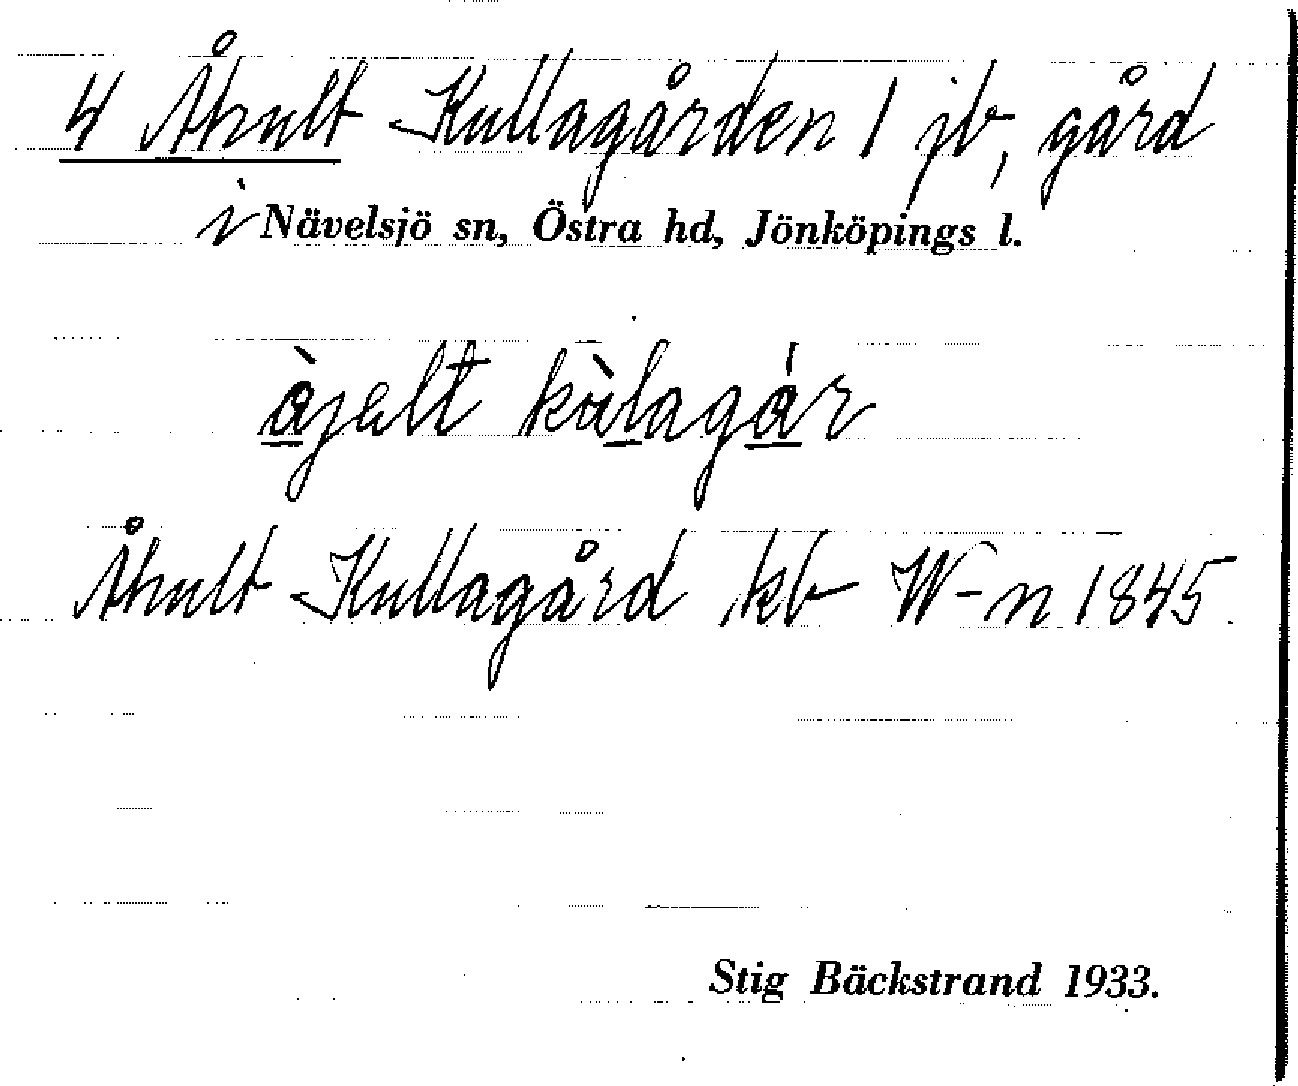 4 Åhult -Kullagården 1 jb, gård
i Nävelsjö sn, Östra hd, Jönköpings l.
àjelt kàlagár
Åhult -Kullagård kb W-n 1845.
Stig Bäckstrand 1933.